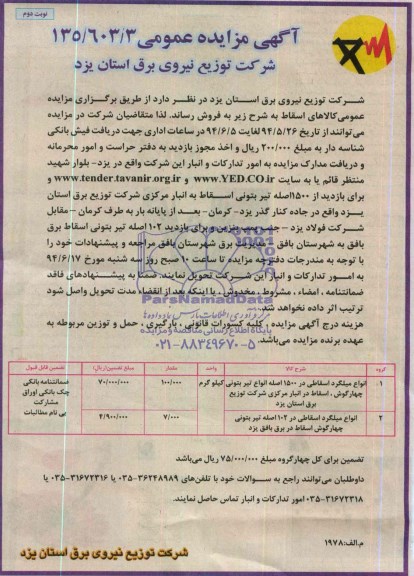 نوبت دوم
آگهی مزایده عمومی ۱۳۵/۶۰۳/۳
شرکت توزیع نیروی برق استان یزد
شرکت توزیع نیروی برق استان یزد در نظر دارد از طریق برگزاری مزایده
عمومی کالاهای اسقاط به شرح زیر به فروش رساند. لذا متقاضیان شرکت در مزایده
می‌توانند از تاریخ ۹۴/۵/۲۶ لغایت ۹۴/۶/۵ در ساعات اداری جهت دریافت فیش بانکی
شناسه دار به مبلغ ۲۰۰/۰۰۰ ریال و اخذ مجوز بازدید به دفتر حراست و امور محرمانه
و دریافت مدارک مزایده به امور تدارکات و انبار این شرکت واقع در یزد- بلوار شهید
منتظر قائم یا به سایت www.YED.CO.ir و www.tender.tavanir.org.ir و
برای بازدید از ۱۵۰۰اصله تیر بتونی اسقاط به انبار مرکزی شرکت توزیع برق استان
یزد واقع در جاده کنار گذر یزد- کرمان- بعد از پایانه بار به طرف کرمان - مقابل
شرکت فولاد یزد - جنب پمپ بنزین و برای بازدید ۱۰۲ اصله تیر بتونی اسقاط برق
بافق به شهرستان بافق - مدیریت برق شهرستان بافق مراجعه و پیشنهادات خود را
با توجه به مندرجات دفترچه مزایده تا ساعت ۱۰ صبح روز سه شنبه مورخ ۹۴/۶/۱۷
به امور تدارکات و انبار این شرکت تحویل نمایند. ضمنا به پیشنهادهای فاقد
ضمانتنامه ، امضاء ، مشروط ، مخدوش ، یا اینکه بعد از انقضاء مدت تحویل واصل شود
ترتیب اثر داده نخواهد شد.
هزینه درج آگهی مزایده ، کلیه کسورات قانونی ، بارگیری ، حمل و توزین مربوطه به
عهده برنده مزایده می‌باشد.
ParsNamadData
۰۲۱-۸۸۳۴۹۶۷۰-۵
گروه شرح کالا واحد مقدار مبلغ تضمین(ریال) تضمین قابل قبول
۱ انواع میلگرد اسقاطی در ۱۵۰۰ اصله انواع تیر بتونی چهارگوش ، اسقاط در انبار مرکزی شرکت توزیع برق استان یزد کیلو گرم ۱۰۰/۰۰۰ ۷۰/۰۰۰/۰۰۰ ضمانتنامه بانکی چک بانکی اوراق مشارکت بی نام مطالبات
۲ انواع میلگرد اسقاطی در ۱۰۲ اصله تیر بتونی چهارگوش اسقاط در برق بافق یزد ۷/۰۰۰ ۴/۹۰۰/۰۰۰
تضمین برای کل چهارگروه مبلغ ۷۵/۰۰۰/۰۰۰ ریال می‌باشد
داوطلبان می‌توانند راجع به سوالات خود با تلفن‌های ۳۶۲۴۸۹۸۹-۰۳۵ یا ۳۱۶۷۲۳۱۶-۰۳۵ یا
۳۱۶۷۲۳۱۸-۰۳۵ امور تدارکات و انبار تماس حاصل نمایند.
م.الف:۱۹۷۸
شرکت توزیع نیروی برق استان یزد